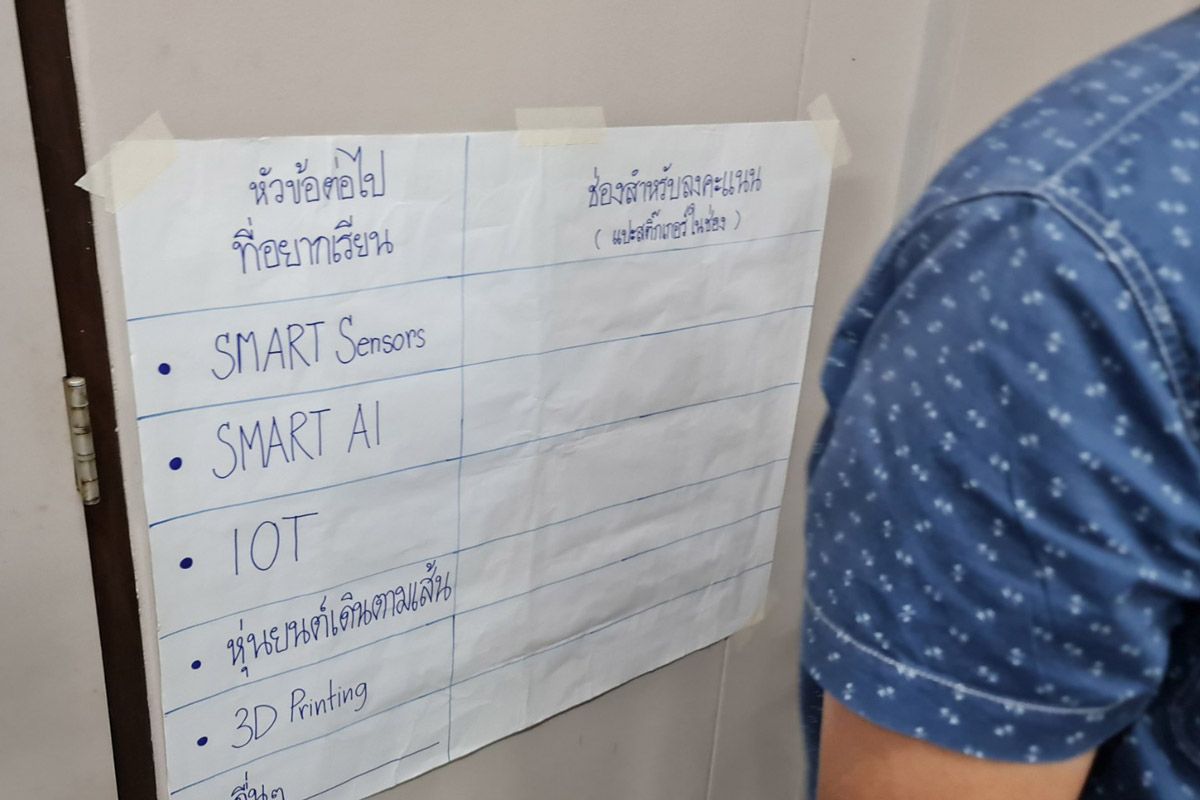 หัวข้อต่อไป
ที่อยากเรียน
ช่องสำหรับลงคะแนน
( แปะสติ๊กเกอร์ในช่อง )
• SMART Sensors
• SMART AI
• IOT
• หุ่นยนต์เดินตามเส้น
• 3D Printing
อื่นๆ